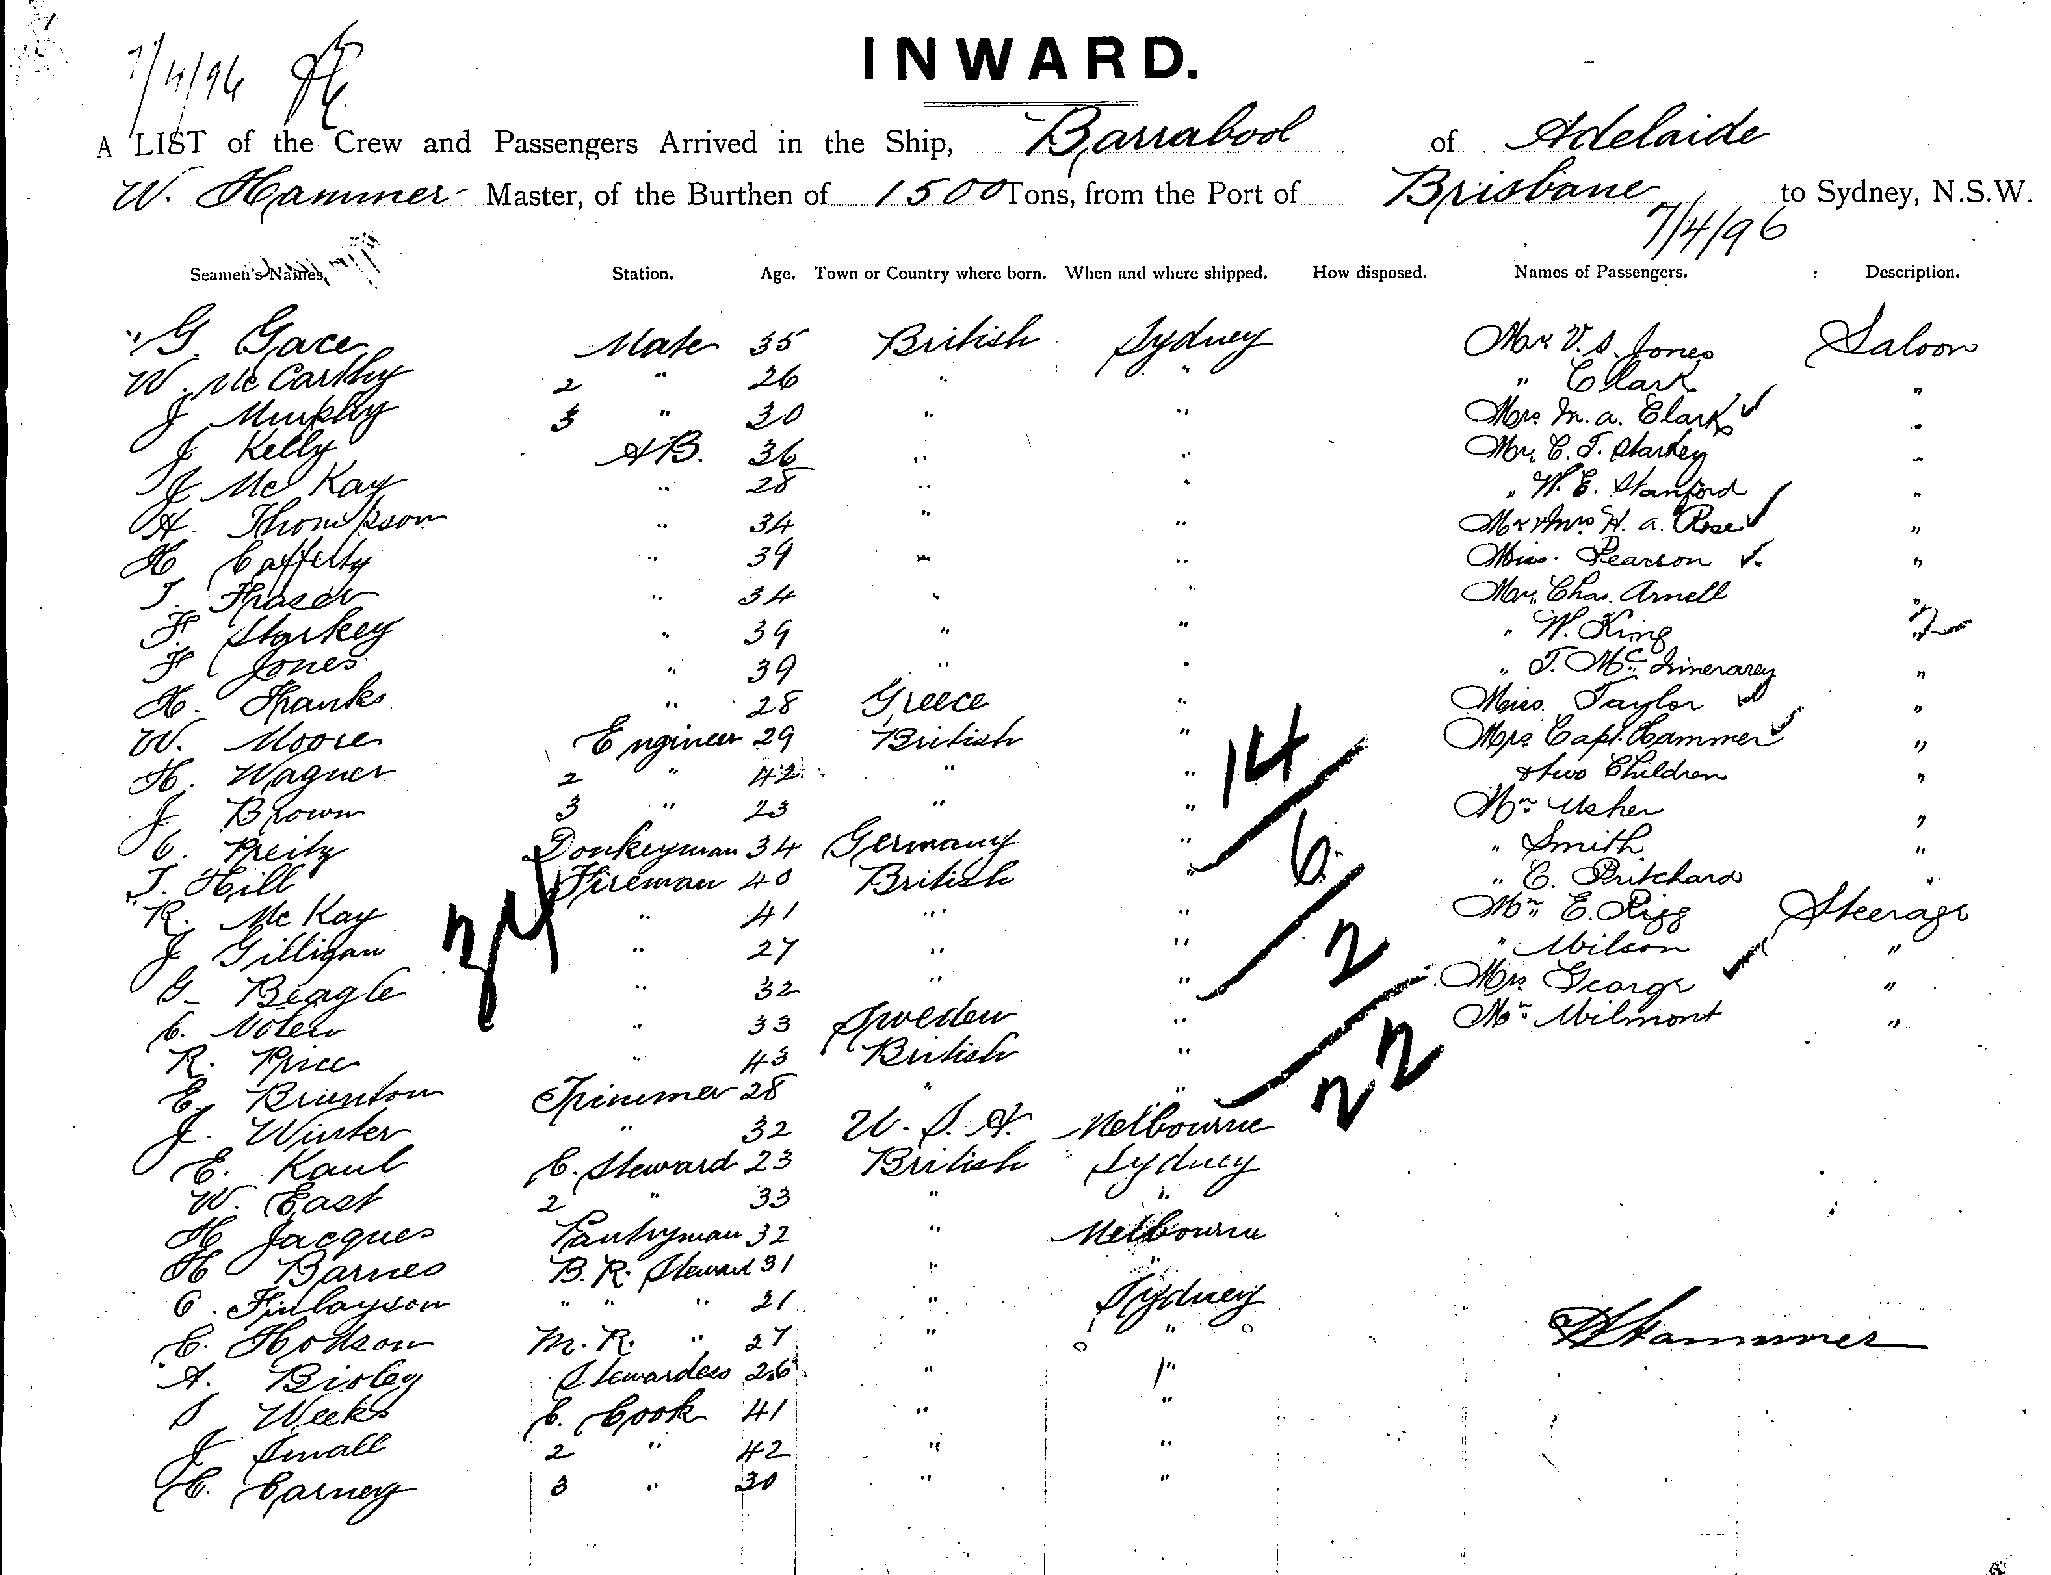 7/4/96
INWARD.
A LIST of the Crew and Passengers Arrived in the Ship, Barrabool of Adelaide
W. Hammer Master, of the Burthen of 1500 Tons, from the Port of Brisbane to Sydney, N.S.W.
7/4/96
Seamen's Names. Station. Age. Town or Country where born. When and where shipped. How disposed. Names of Passengers. Description.
G Gace Mate 35 British Sydney Mr V. S. Jones Saloon
W. McCarthy 2 " 26 " " " Clark "
J Murphy 3 " 30 " " Mrs M. A. Clark "
J Kelly AB. 36 " " Mr C. T. Starkey "
J McKay " 28 " " " W. E. Stanford "
H. Thompson " 34 " " Mr & Mrs H. A. Rose "
H Cafferty " 39 " " Miss Pearson "
T. Fraser " 34 " " Mr Chas. Arnell "
F. Starkey " 39 " " " W. King "
F Jones " 39 " " " T. Mc "
H. Franks " 28 Greece " Miss Taylor "
W. Moore Engineer 29 British " Mrs Capt. Hammer "
H. Wagner 2 " 42 " " & two Children "
J Brown 3 " 23 " " 14 Mr Usher "
C. Preitz Donkeyman 34 Germany " " Smith "
T. Hill Fireman 40 British " 6 " E. Pritchard "
R. McKay " 41 " " Mr E. Rigg Steerage
J Gilligan " 27 " " 2 " Wilson "
34
G Beagle " 32 " " Mrs George "
C. Nolen " 33 Sweden " Mr Wilmont "
R. Price " 43 British "
22
E Brunton Trimmer 28 " "
J. Winter " 32 U.S.A. Melbourne
E. Kaul C. Steward 23 British Sydney
W. East 2 " 33 " "
H Jacques Pantryman 32 " Melbourne
H Barnes B. R. Steward 31 " "
C. Finlayson " " " 21 " Sydney
E. Hodson M. R. " 27 " "
W Hammer
A. Bisley Stewardess 26 " "
S Weeks C. Cook 41 " "
J Small 2 " 42 " "
C. Carney 3 " 30 " "